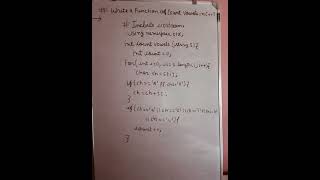 Write a Function of Count Vowels in C++
# Include <iostream>
Using namespace std;
int count vowels (string s) {
int count = 0;
for (int i = 0; i < s.length(); i++) {
char ch = s[i];
if (ch >= 'A' && ch <= 'Z') {
ch = ch + 32;
}
if (ch == 'a' || ch == 'e' || ch == 'i' || ch == 'o'
|| ch == 'u') {
count++;
}